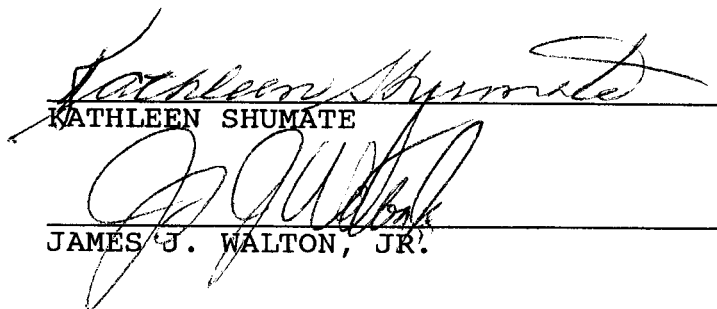 Kathleen Shumate
KATHLEEN SHUMATE
JAMES J. WALTON, JR.